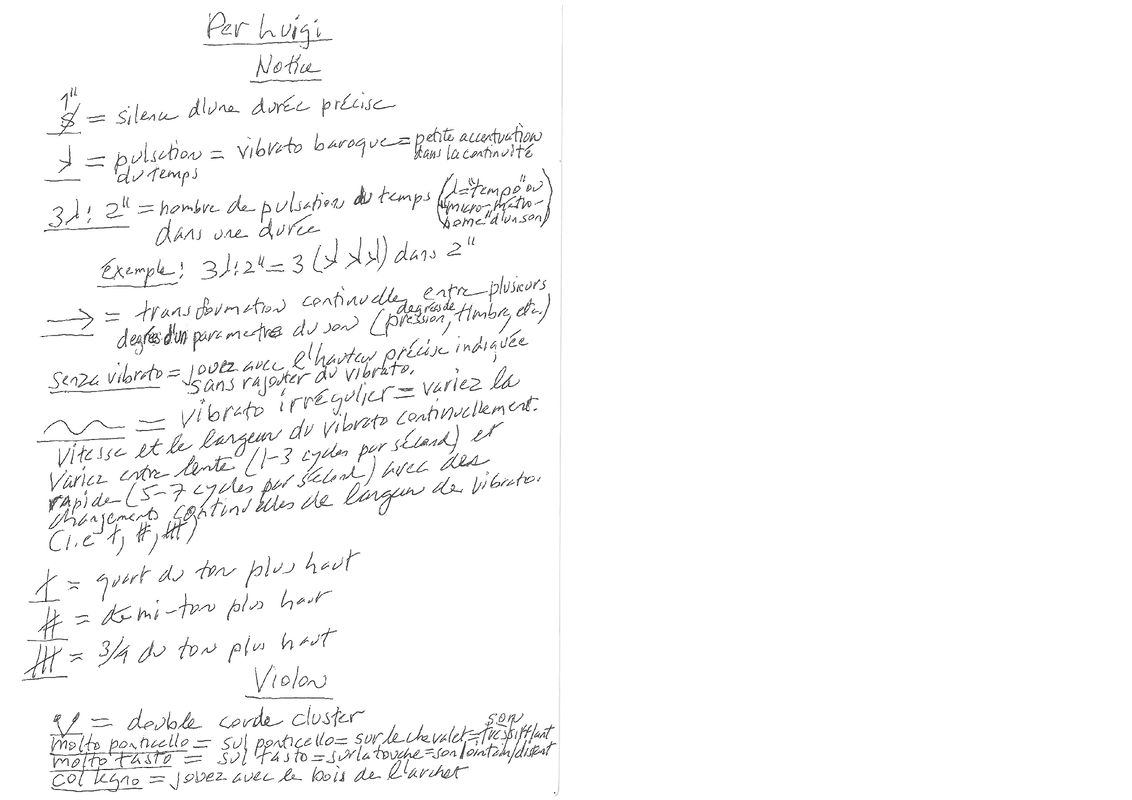 Per Luigi
Notice
1"
= silence d'une durée précise
= pulsation = vibrato baroque = petite accentuation
du temps dans la continuité
3λ: 2" = nombre de pulsation du temps (λ = "tempo" ou
"micro-métro-
dans une durée nome" d'un son)
Exemple: 3λ:2" = 3 (λ λ λ) dans 2"
→ = transformation continuelle entre plusieurs
degrés d'un parametres du son (degrés de pression, timbre, etc.)
senza vibrato = jouez avec l'hauteur précise indiquée
sans rajouter du vibrato.
= vibrato irrégulier = variez la
vitesse et le largeur du vibrato continuellement.
Variez entre lente (1-3 cycles par sécond) et
rapide (5-7 cycles par sécond) avec des
changements continuelles de largeur de vibrato.
(i.e ‡, #, )
‡ = quart du ton plus haut
# = demi-ton plus haut
= 3/4 du ton plus haut
Violon
= double corde cluster
molto ponticello = sul ponticello = sur le chevalet = son très sifflant
molto tasto = sul tasto = sur la touche = son lointain/distant
col legno = jouez avec le bois de l'archet